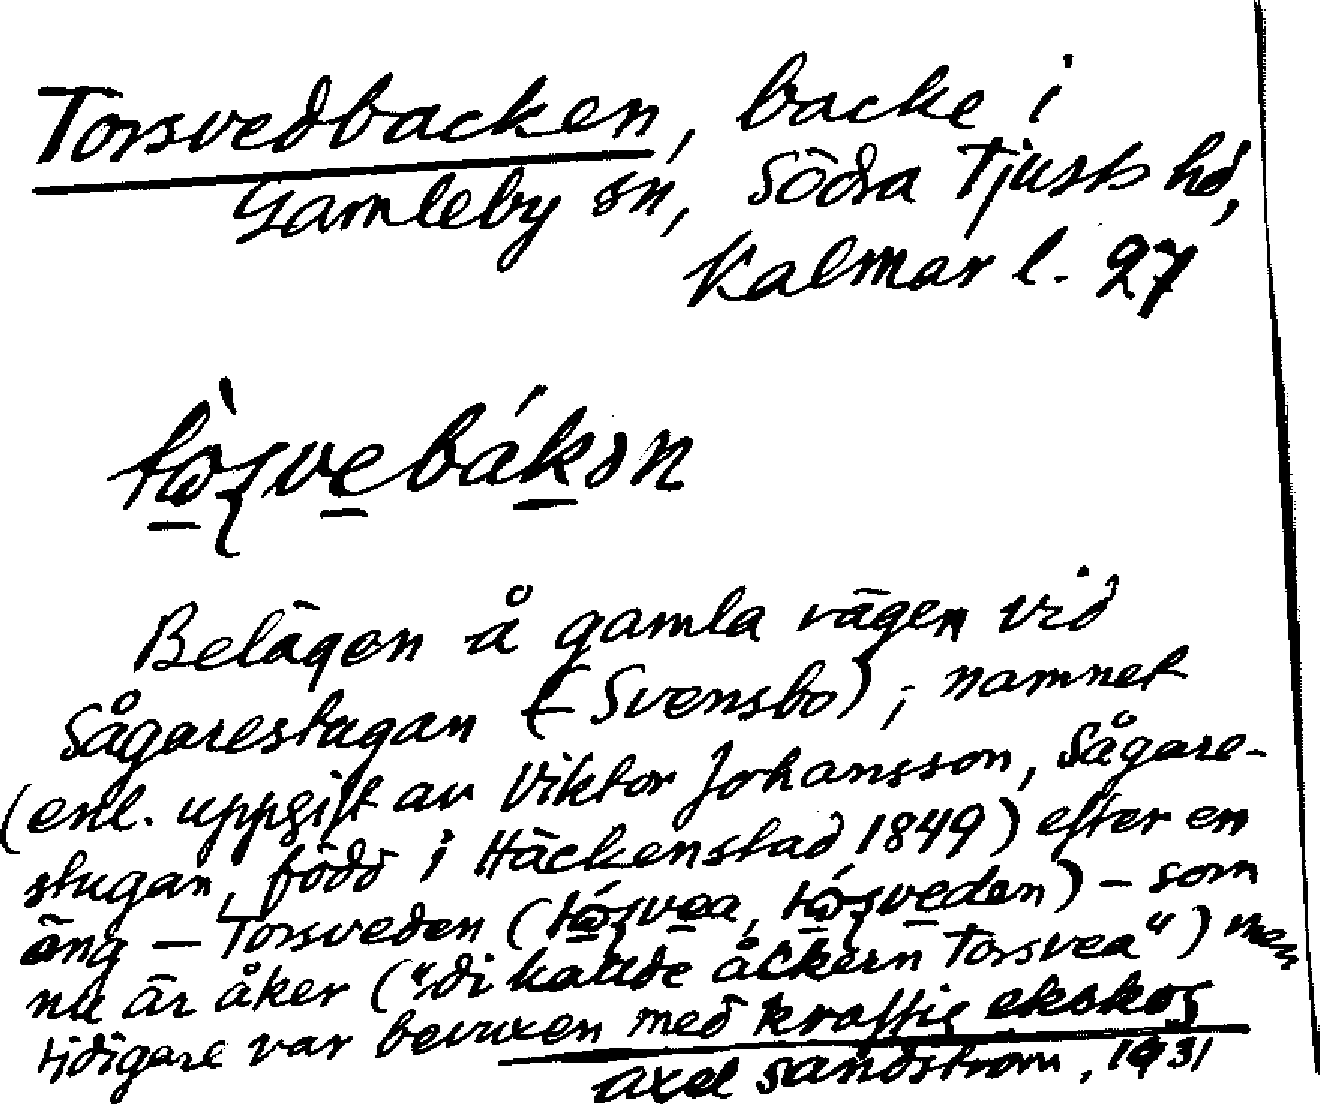 Torsvedbacken, backe i
Gamleby sn, Södra Tjusts hd,
Kalmar l. 27
Belägen å gamla vägen vid
Sågarestugan (Svensbo), namnet
(enl. uppgift av Viktor Johansson, Sågare-
stugan, född i Häckenstad 1849) efter en
äng – Torsveden – som
nu är åker ("di kallde åckern Torsvea") men
tidigare var bevuxen med kraftig ekskog
Axel Sandström, 1931